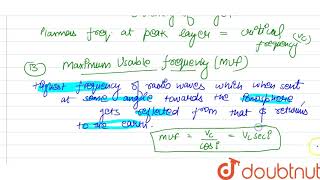 Plasmas freq at peak layer = critical
frequency (νc)
(B) Maximum Usable frequency [MUF)
Highest frequency of radio waves which when sent
at some angle towards the Ionosphere
gets reflected from that & returns
to the earth.
MUF = νc/cos i = νc sec i
doubtnut